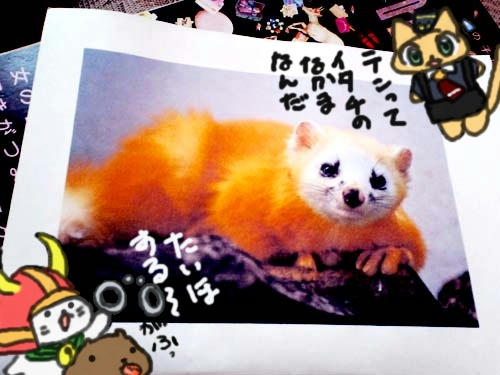 テンって
イタチの
なかま
なんだ
たいほ
する～
がぶっ
女の